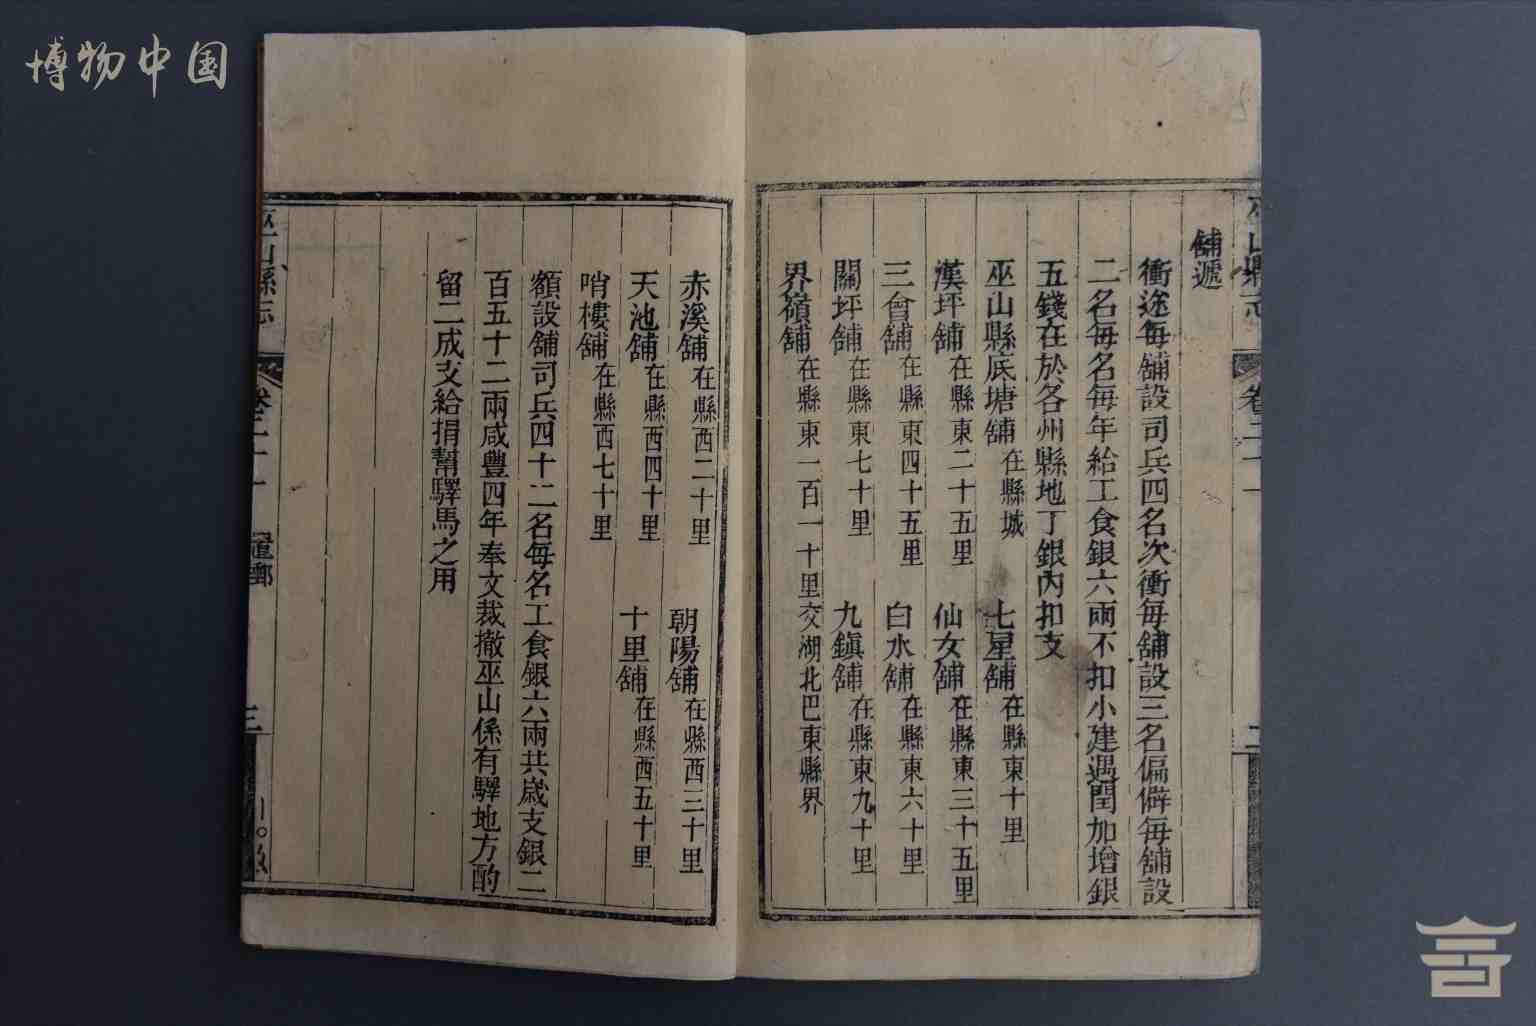 博物中国
舖遞
衝途每舖設司兵四名次衝每舖設三名偏僻每舖設
二名每名每年給工食銀六兩不扣小建遇閏加增銀
五錢在於各州縣地丁銀內扣支
巫山縣底塘舖在縣城 七星舖在縣東十里
漢坪舖在縣東二十五里 仙女舖在縣東三十五里
三會舖在縣東四十五里 白水舖在縣東六十里
關坪舖在縣東七十里 九鎭舖在縣東九十里
界嶺舖在縣東一百一十里交湖北巴東縣界
赤溪舖在縣西二十里 朝陽舖在縣西三十里
天池舖在縣西四十里 十里舖在縣西五十里
哨樓舖在縣西七十里
額設舖司兵四十二名每名工食銀六兩共歲支銀二
百五十二兩咸豐四年奉文裁撤巫山係有驛地方酌
留二成支給捐幫驛馬之用
巫山縣志
三